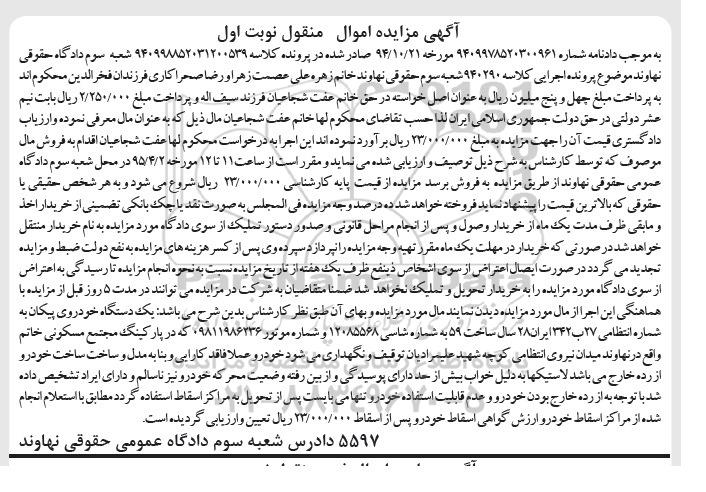 آگهی مزایده اموال   منقول نوبت اول
به موجب دادنامه شماره ۹۴۰۹۹۷۸۵۲۰۳۰۰۹۶۱ مورخه ۹۴/۱۰/۲۱ صادر شده در پرونده کلاسه ۹۴۰۹۹۸۸۵۲۰۳۱۲۰۰۵۳۹ شعبه سوم دادگاه حقوقی
نهاوند موضوع پرونده اجرایی کلاسه ۹۴۰۲۹۰ شعبه سوم حقوقی نهاوند خانم زهره علی عصمت زهرا و رضا صحراکاری فرزندان فخرالدین محکوم اند
به پرداخت مبلغ چهل و پنج میلیون ریال به عنوان اصل خواسته در حق خانم عفت شجاعیان فرزند سیف اله و پرداخت مبلغ ۲/۲۵۰/۰۰۰ ریال بابت نیم
عشر دولتی در حق دولت جمهوری اسلامی ایران لذا حسب تقاضای محکوم لها خانم عفت شجاعیان مال ذیل که به عنوان مال معرفی نموده و ارزیاب
دادگستری قیمت آن را جهت مزایده به مبلغ ۲۳/۰۰۰/۰۰۰ ریال بر آورد نموده اند این اجرا به درخواست محکوم لها عفت شجاعیان اقدام به فروش مال
موصوف که توسط کارشناس به شرح ذیل توصیف و ارزیابی شده می نماید و مقرر است از ساعت ۱۱ تا ۱۲ مورخه ۹۵/۴/۲ در محل شعبه سوم دادگاه
عمومی حقوقی نهاوند از طریق مزایده به فروش برسد مزایده از قیمت پایه کارشناسی ۲۳/۰۰۰/۰۰۰ ریال شروع می شود و به هر شخص حقیقی یا
حقوقی که بالاترین قیمت را پیشنهاد نماید فروخته خواهد شد ده درصد وجه مزایده فی المجلس به صورت نقد یا چک بانکی تضمینی از خریدار اخذ
و مابقی ظرف مدت یک ماه از خریدار وصول و پس از انجام مراحل قانونی و صدور دستور تملیک از سوی دادگاه مورد مزایده به نام خریدار منتقل
خواهد شد در صورتی که خریدار در مهلت یک ماه مقرر تهبه وجه مزایده را نپردازد سپرده وی پس از کسر هزینه های مزایده به نفع دولت ضبط و مزایده
تجدید می گردد در صورت ایصال اعتراض از سوی اشخاص ذینفع ظرف یک هفته از تاریخ مزایده نسبت به نحوه انجام مزایده تا رسیدگی به اعتراض
از سوی دادگاه مورد مزایده را به خریدار تحویل و تملیک نخواهد شد ضمنا متقاضیان به شرکت در مزایده می توانند در مدت ۵ روز قبل از مزایده با
هماهنگی این اجرا از مال مورد مزایده دیدن نمایند مال مورد مزایده و بهای آن طبق نظر کارشناس بدین شرح می باشد: یک دستگاه خودروی پیکان به
شماره انتظامی ۲۷ب۳۴۲ ایران ۲۸ سال ساخت ۵۹ به شماره شاسی ۱۲۰۸۵۵۶۸ و شماره موتور ۰۰۹۸۱۱۹۸۶۳۳۶ که در پارکینگ مجتمع مسکونی خاتم
واقع در نهاوند میدان نیروی انتظامی کوچه شهید علیمرادیان توقیف و نگهداری می شود خودرو عملا فاقد کارایی و بنا به مدل و ساخت ساخت خودرو
از رده خارج می باشد لاستیکها به دلیل خواب بیش از حد دارای پوسیدگی و از بین رفته وضعیت محرکه خودرو نیز ناسالم و دارای ایراد تشخیص داده
شد با توجه به از رده خارج بودن خودرو و عدم قابلیت استفاده خودرو تنها می بایست پس از تحویل به مراکز اسقاط استفاده گردد مطابق با استعلام انجام
شده از مراکز اسقاط خودرو ارزش گواهی اسقاط خودرو پس از اسقاط ۲۳/۰۰۰/۰۰۰ ریال تعیین وارزیابی گردیده است.
۵۵۹۷ دادرس شعبه سوم دادگاه عمومی حقوقی نهاوند